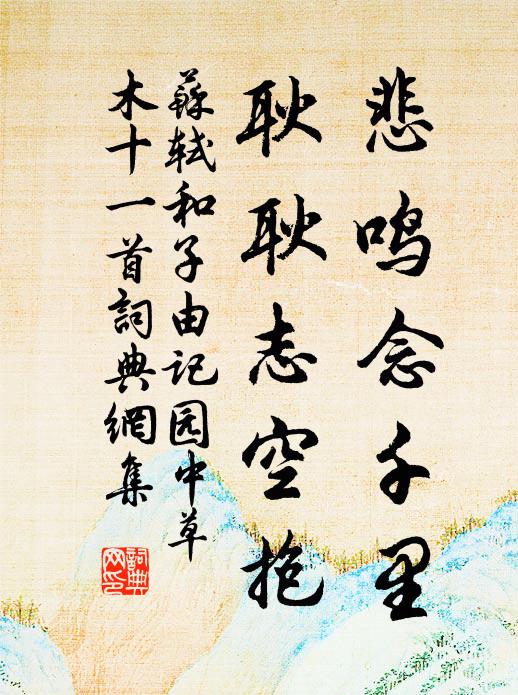 悲鸣念千里
耿耿志空抱
蘇軾和子由记园中草
木十一首詞典網集
詞典
网印